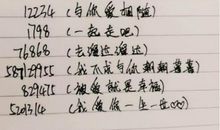 12234 (与你爱相随)
1798 (一起走吧)
76868 (去溜达溜达)
587129955 (我不求与你朝朝暮暮)
829475 (被爱就是幸福)
5201314 (我爱你一生一世)